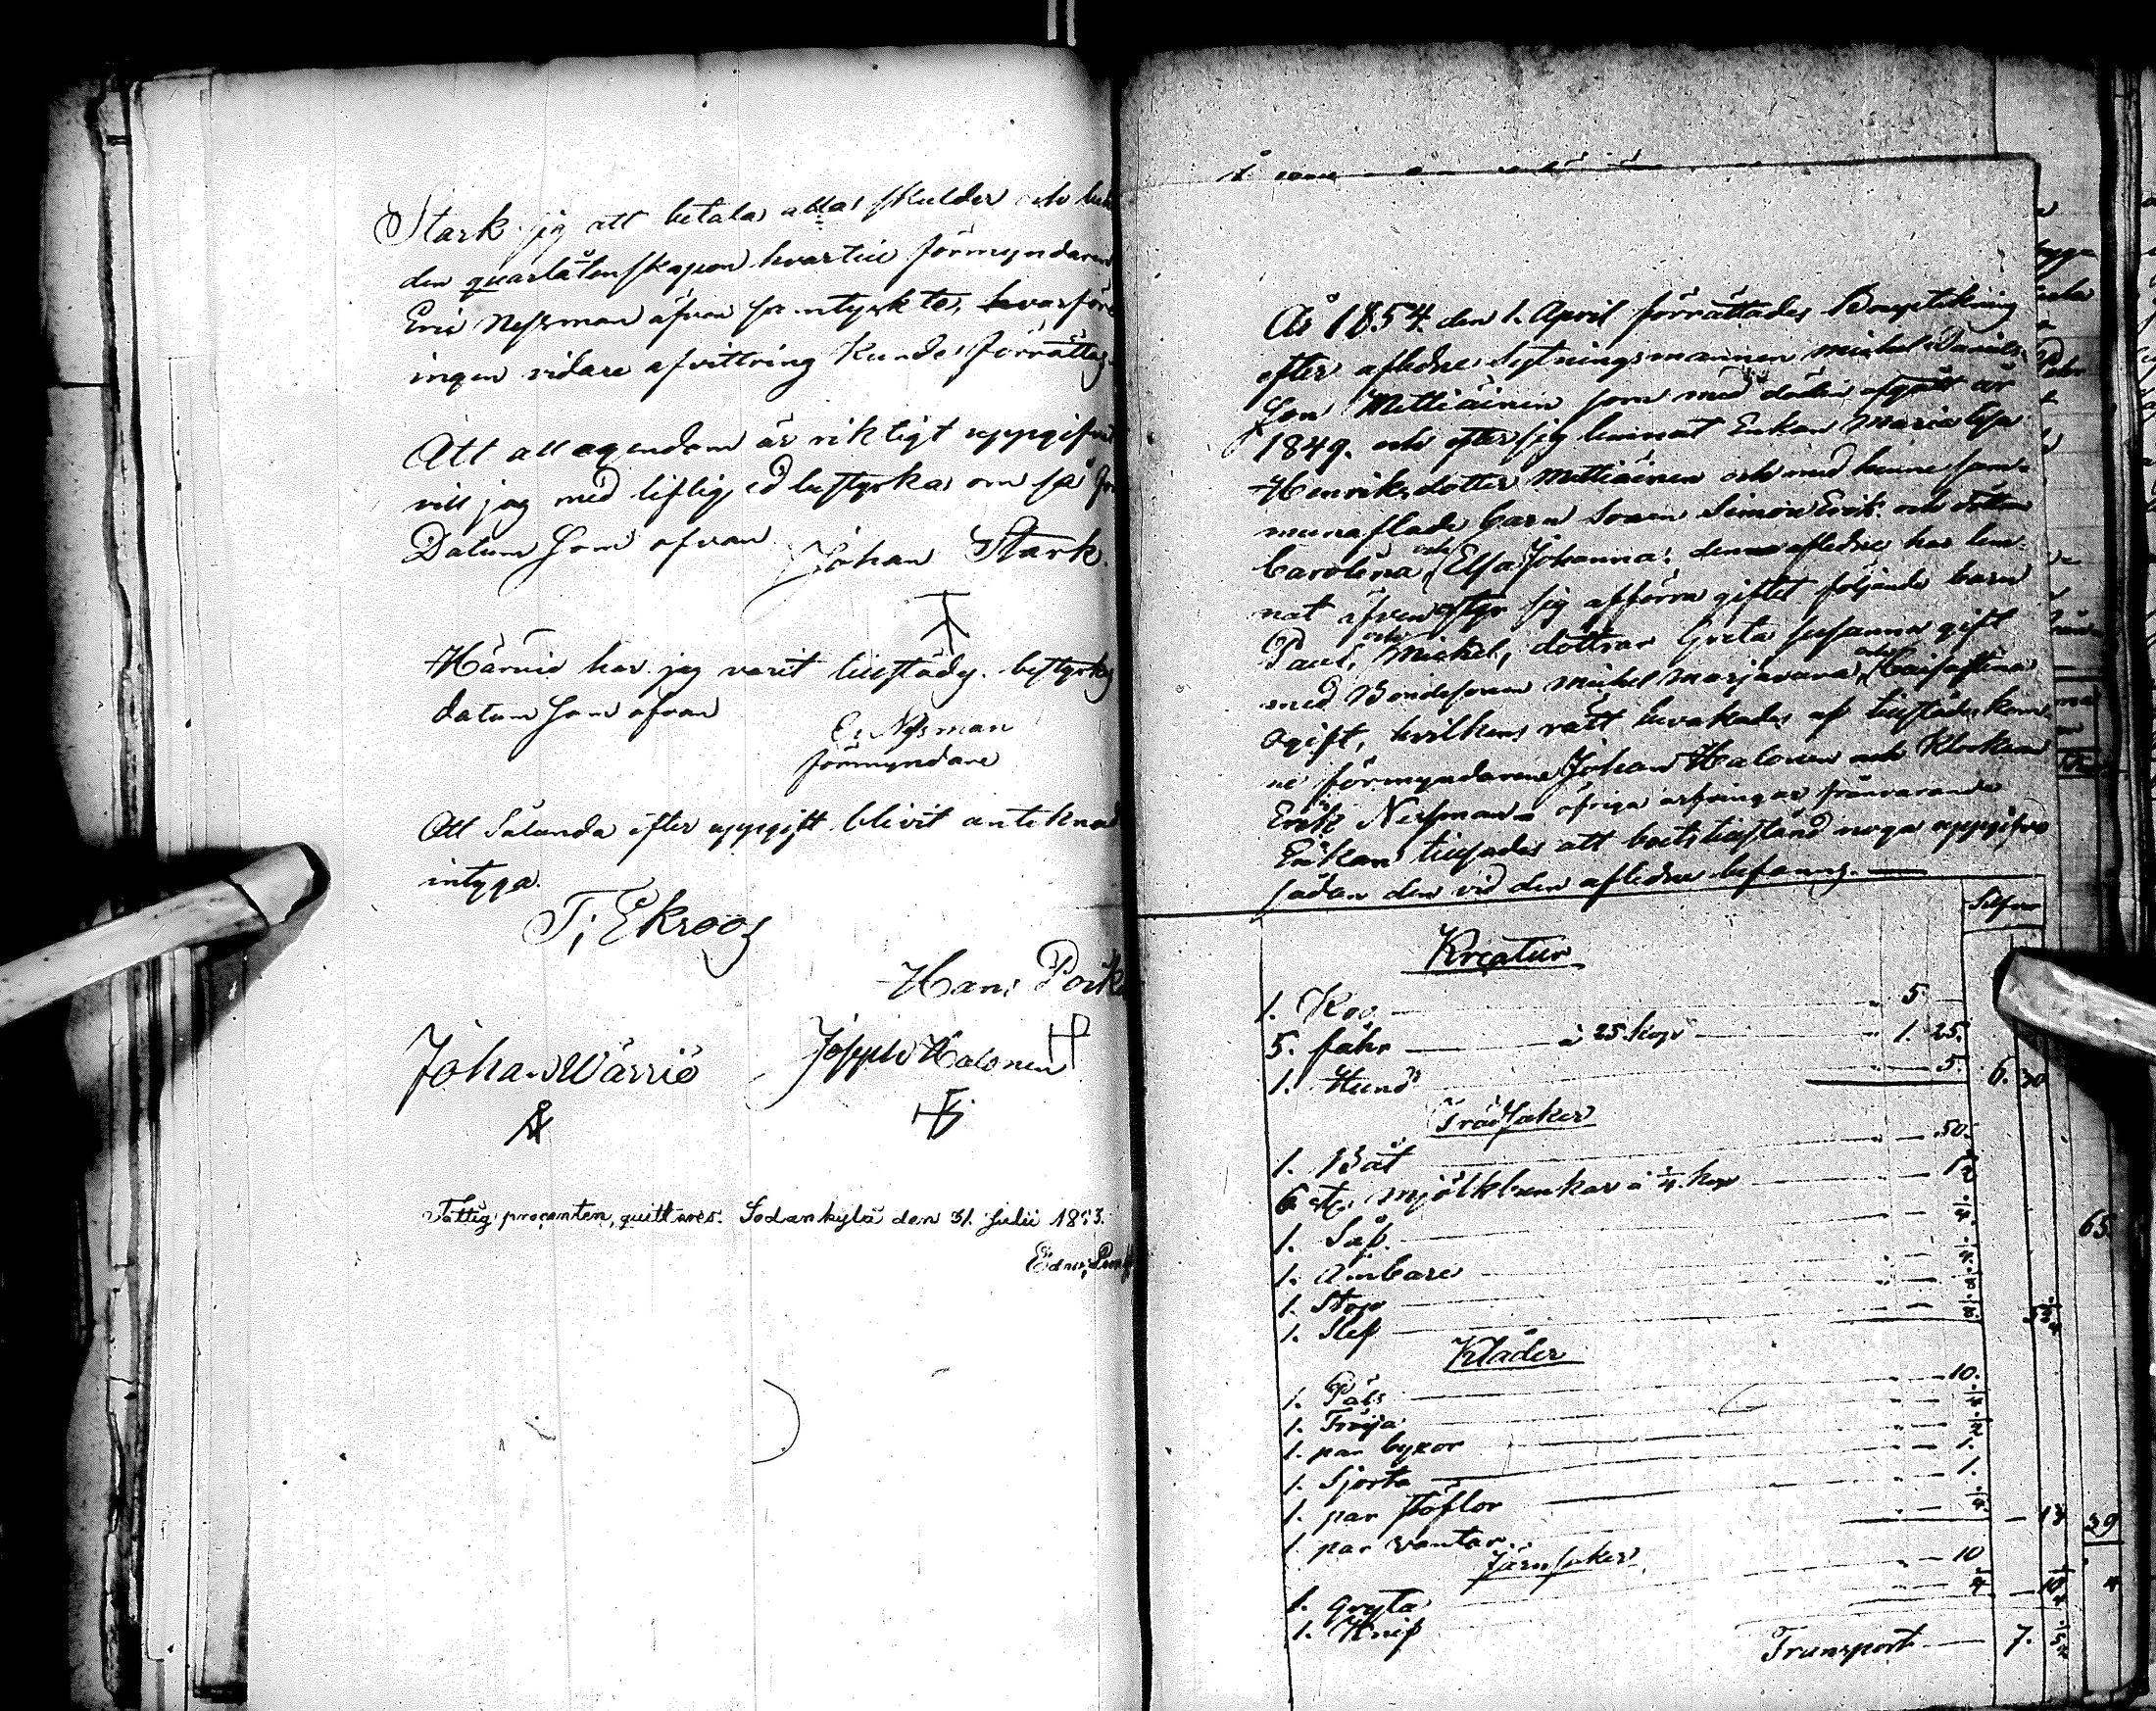 Stark sig att betala alla skulder och
den quarlåtenskapen hvartill förmyndaren
Eric Nessman äfven samtyckte, hvarföre
ingen vidare afvittring kunde förrättas.
Att all egendom är riktigt uppgifvit
vill jag med liflig ed bestyrka om så
Datum som ofvan
Johan Stark.
Härvid har jag varit tillstädes bestyrkes
datum som ofvan
E. Nessman
förmyndare
Att Sålunda efter uppgift blivit anteknat
intyga.
T. Ekroos
Hans
Johan Wärriö Joseph Halonen
Fattig procenten, quitteres. Sodankylä den 31. Julii 1853.
År 1854. den 1. April förrättades Bouptekning
efter aflidne Sytningsmannen Michel Daniels-
son Mettiäinen som med döden afgått år
1849. och efter sig lemnat Enkan Maria Lisa
Henriksdotter Mettiäinen och med henne sam-
manaflade barn Sonen Simon Erik och döttrar
Carolina och Elsa Johanna; denne aflidne har lem-
nat äfven efter sig af förra giftet följande barn
Paul, och Michel, döttrar Greta Susanna gift
med Bondesonen Michel Marjavaara, och
ogift, hvilkens rätt bevakades af tillstädes kom-
ne förmyndarene Johan Halonen och Klockaren
Erik Nessman öfriga arfvingar frånvarande
Enkan tillsades att boets tillstånd noga uppgifva
sådan den vid den aflidne befanns.
Silfver
Kreatur
1. Ko 5
5. fåhr à 25 kop 1. 25.
1. Hund 5 6. 30
Trädsaker
1. Båt 50.
6 st. mjölkbunkar à 1/4 kop 1 1/2
1. Såf. 1/4 65.
1. Ämbare 1/4
1. Stop
1. Slef
Kläder
1. Päls 10.
1. Tröja
1. par byxor 1/2
1. Sjorta 1.
1. par stöflor 1.
1. par vantar 1/4 13 39
Järnsaker
1. gryta 10
1. Knif 1/4 10 1/4 4
Transport 7.